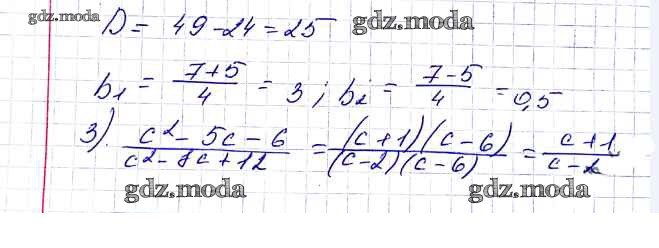 gdz.moda D = 49 - 24 = 25 gdz.moda
b₁ = (7+5)/4 = 3 ; b₂ = (7-5)/4 = 0,5
3). (c² - 5c - 6)/(c² - 8c + 12) = (c+1)(c-6)/(c-2)(c-6) = (c+1)/(c-2)
gdz.moda gdz.moda